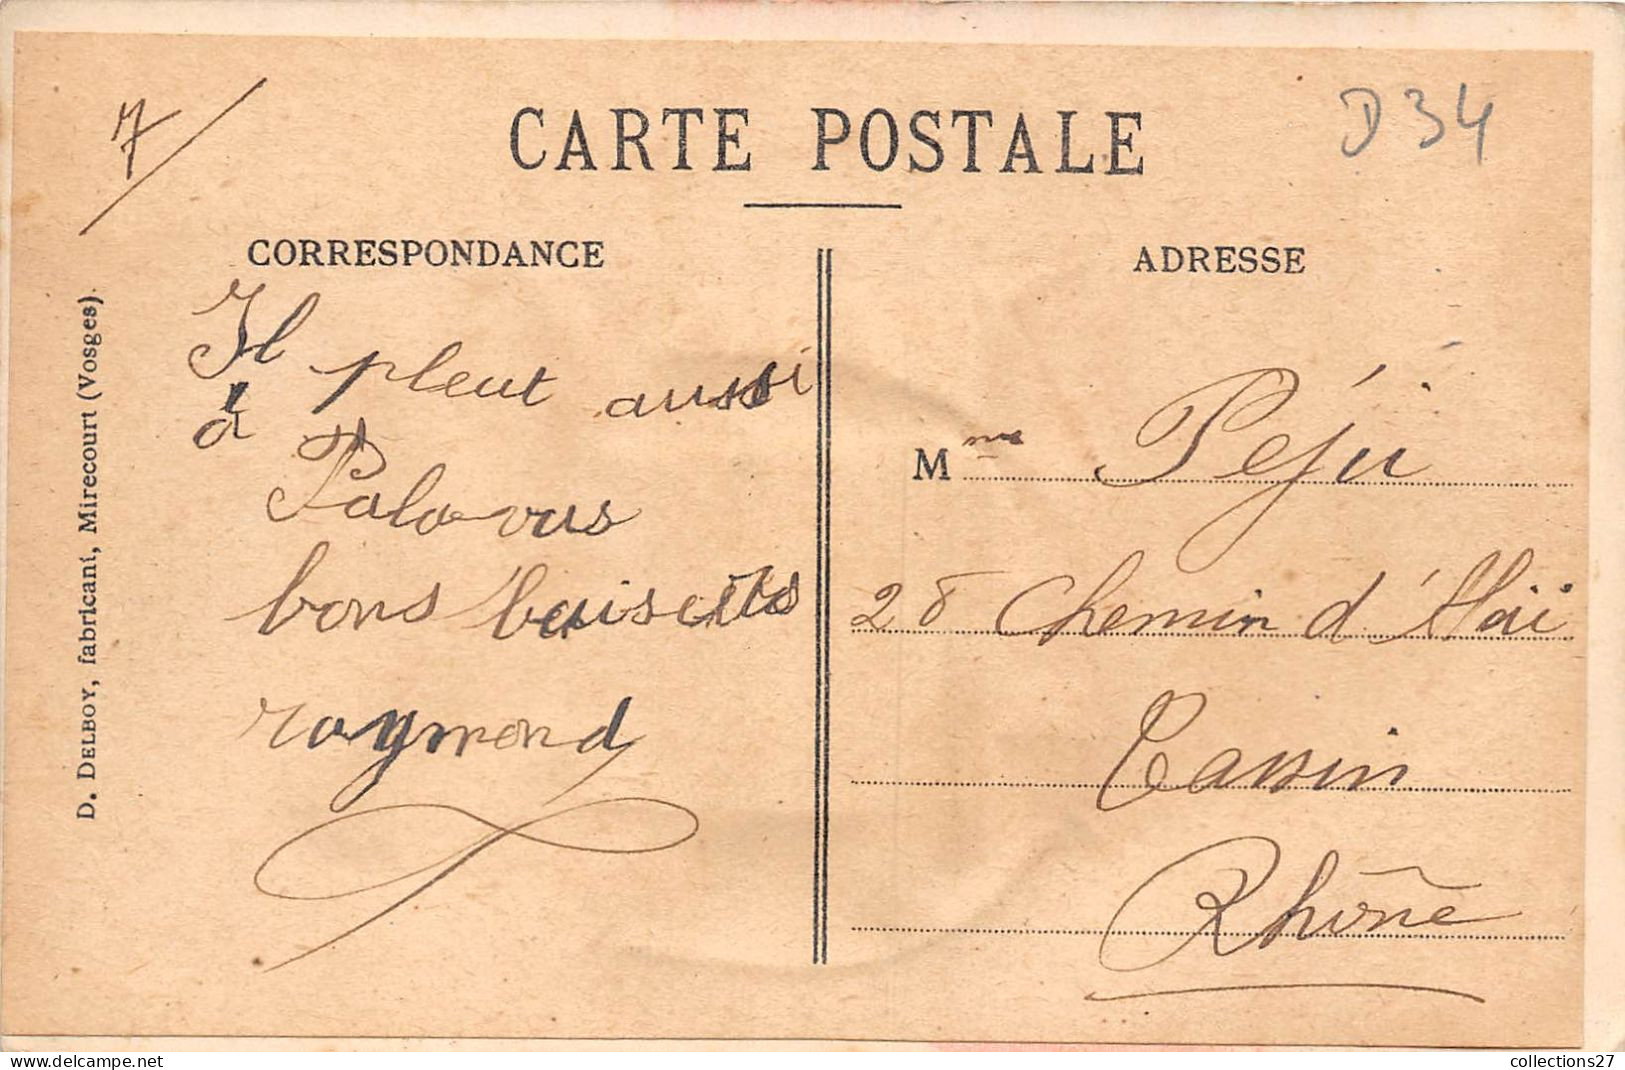 7
CARTE POSTALE
D 34
CORRESPONDANCE
Il pleut aussi
à Palavas
bons baisers
raymond
ADRESSE
Mme Péju
28 Chemin d'Alaï
Tassin
Rhône
D. DELBOY, fabricant, Mirecourt (Vosges).
collections27